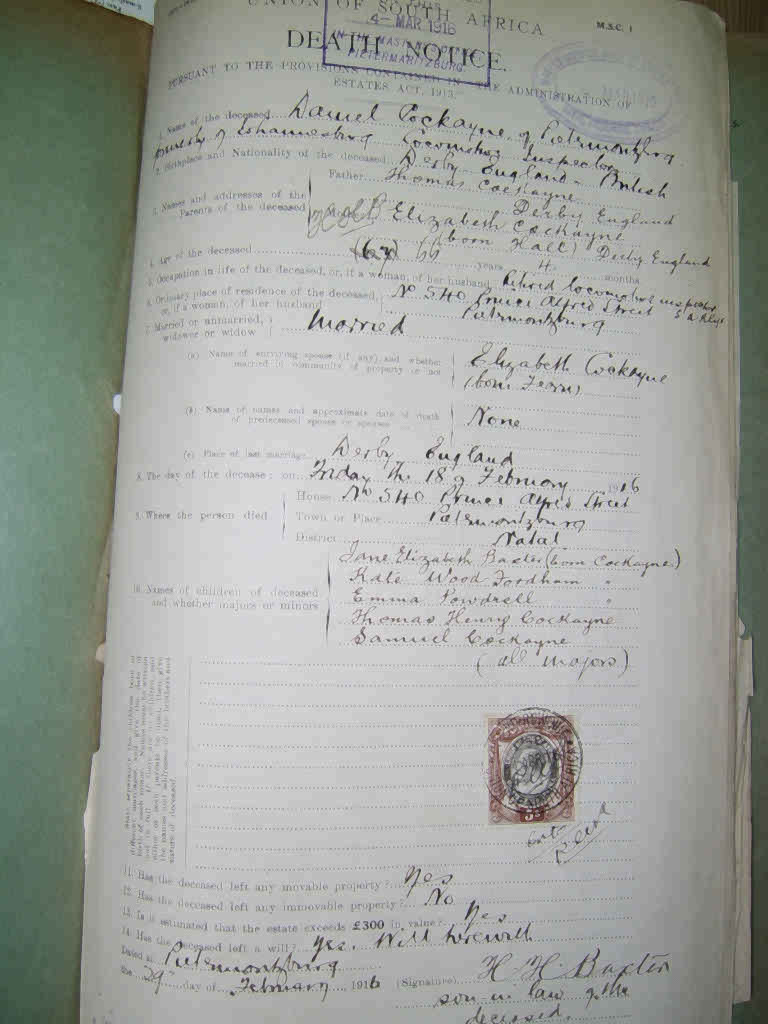 UNION OF SOUTH AFRICA
M.S.C. 1
4-MAR 1916
IN THE MASTER'S
PIETERMARITZBURG.
DEATH NOTICE.
PURSUANT TO THE PROVISIONS CONTAINED IN THE ADMINISTRATION OF
ESTATES ACT, 1913.
1. Name of the deceased Daniel Cockayne of Pietermritzburg
formerly of Johannesburg Locomotive Inspector
2. Birthplace and Nationality of the deceased Derby England - British
Father Thomas Cockayne
Derby England
3. Names and addresses of the
Parents of the deceased
Elizabeth Cockayne
(born Hall) Derby England
4. Age of the deceased years 4 months
5. Occupation in life of the deceased, or, if a woman, of her husband Retired locomotive inspector
6. Ordinary place of residence of the deceased,
or, if a woman, of her husband
No 540 Prince Alfred Street
Pietermritzburg
7. Married or unmarried,
widower or widow
Married
(a) Name of surviving spouse (if any) and whether
married in community of property or not
Elizabeth Cockayne
(born Fearn)
(b) Name of names and approximate date of death
of predeceased spouse or spouses
None
(c) Place of last marriage Derby England
8. The day of the decease: on Friday the 18 of February 1916
House No 540 Prince Alfred Street
9. Where the person died
Town or Place Pietermritzburg
District Natal
10. Names of children of deceased
and whether majors or minors
Jane Elizabeth Baxter (born Cockayne)
Kate Wood Fordham "
Emma Powdrell "
Thomas Henry Cockayne
Samuel Cockayne
(all majors)
11. Has the deceased left any movable property? Yes
12. Has the deceased left any immovable property? No
13. Is it estimated that the estate exceeds £300 in value? Yes
14. Has the deceased left a will? Yes. Will herewith
Dated at Pietermritzburg
the 29 day of February 1916 (Signature) H. H. Baxter
son-in law of the
deceased.